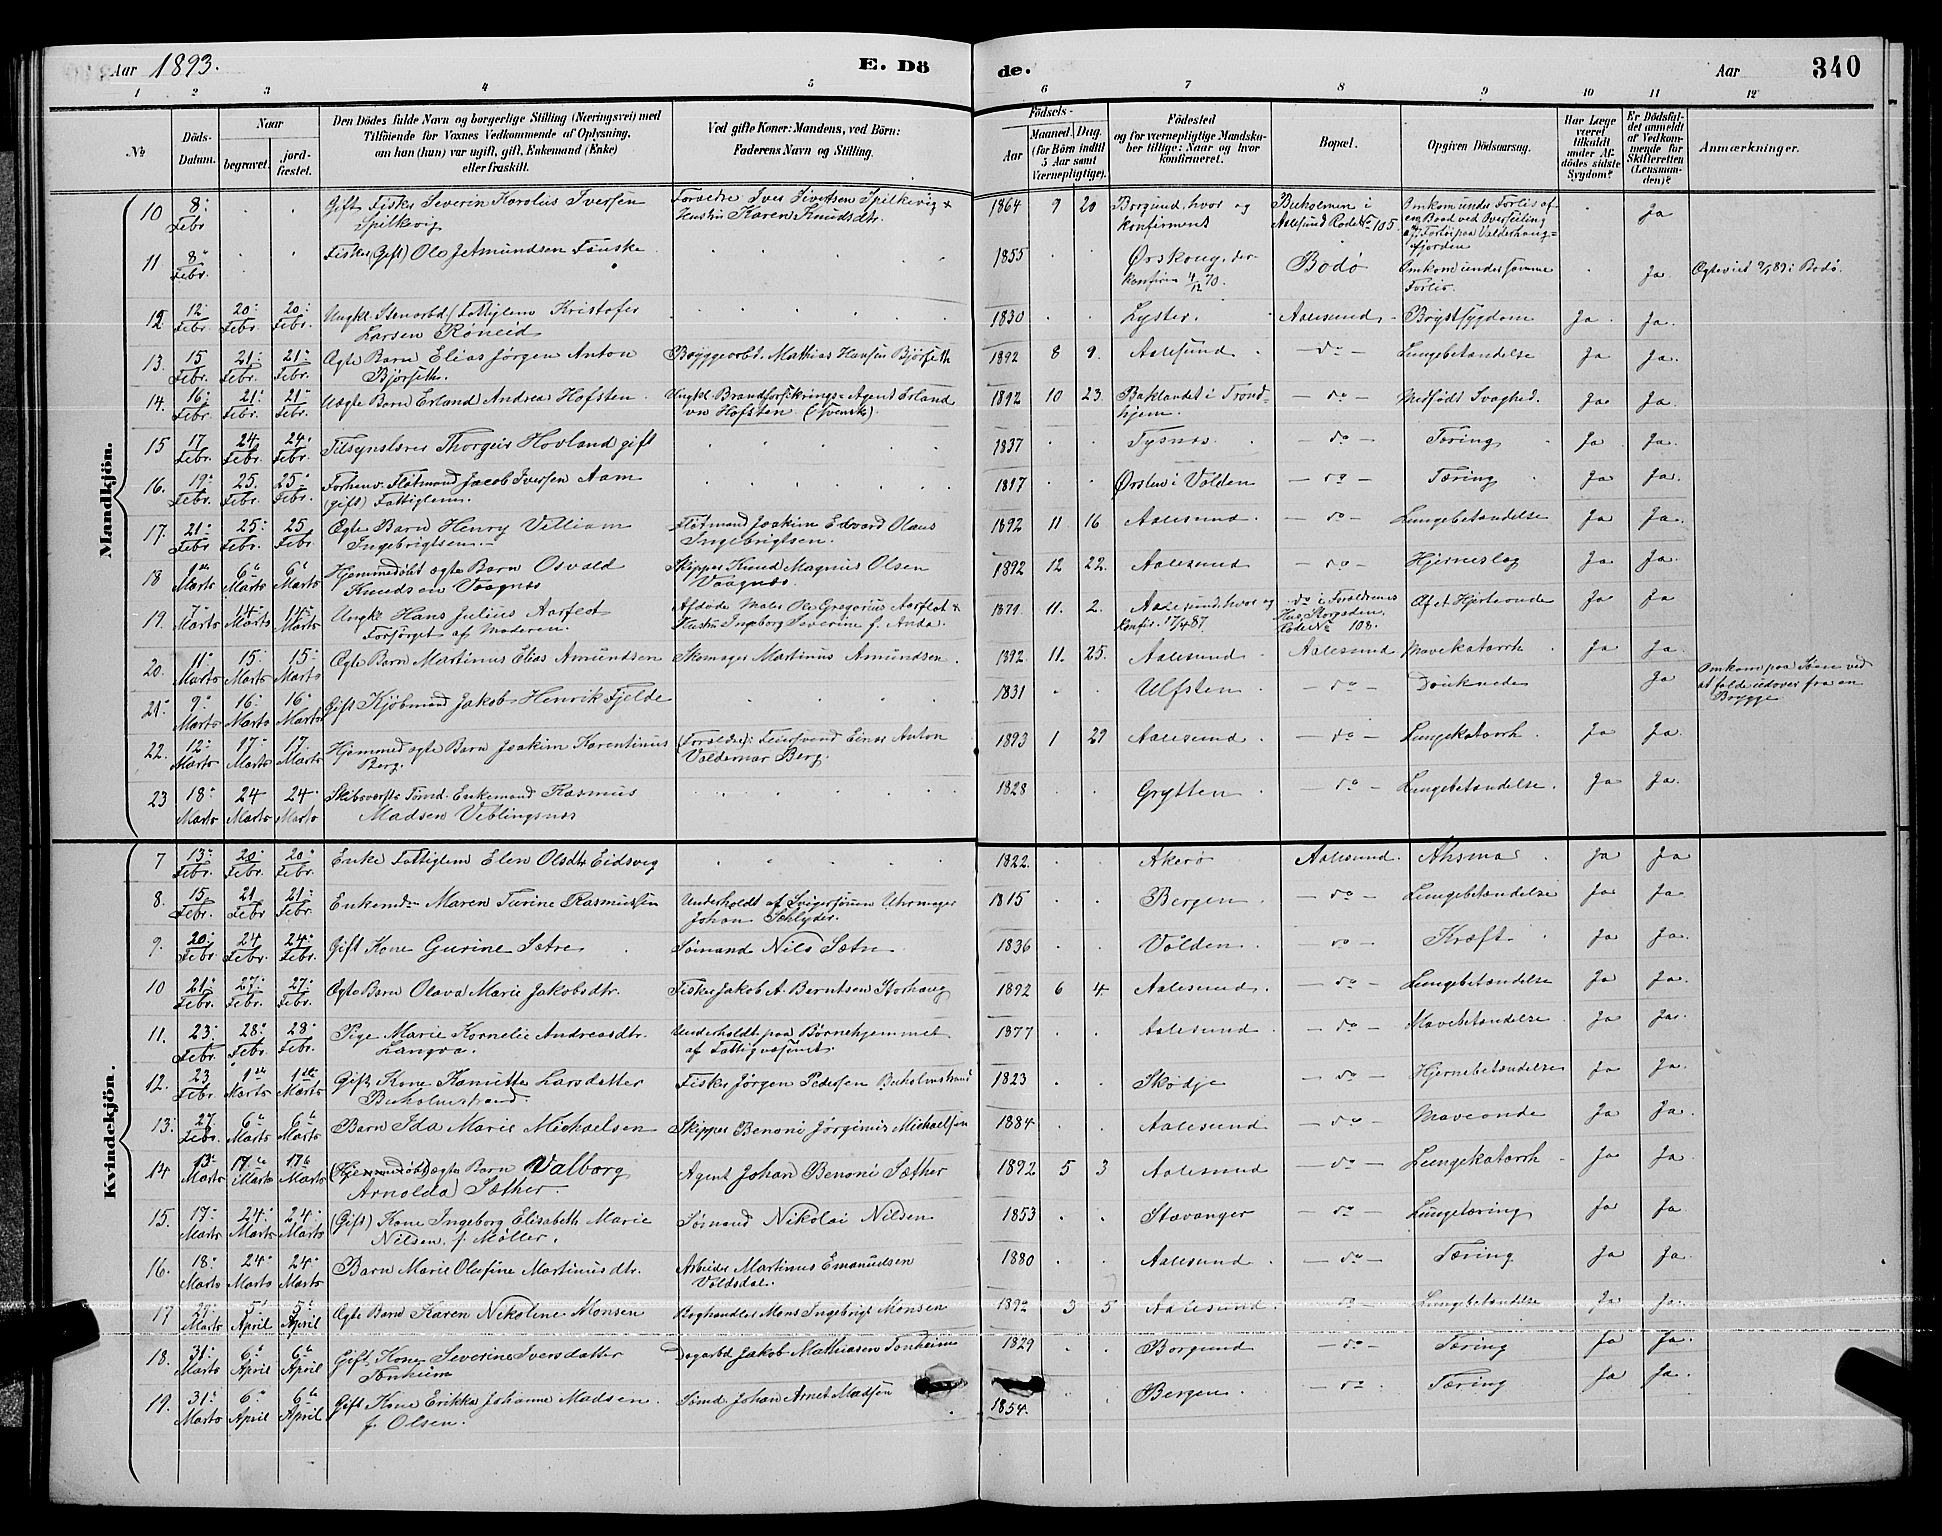 Aar 1893. E. Dö de. Aar 340
1 2 3 4 5 6 7 8 9 10 11 12
№
Döds-
Datum.
Naar
begravet.
jord-
fæstet.
Den Dödes fulde Navn og borgerlige Stilling (Næringsvei) med
Tilföiende for Voxnes Vedkommende af Oplysning,
om han (hun) var ugift, gift, Enkemand (Enke)
eller fraskilt.
Ved gifte Koner: Mandens, ved Börn:
Faderens Navn og Stilling.
Födsels-
Aar
Maaned. Dag.
(for Börn indtil
5 Aar samt
Værnepligtige).
Födested
og for værnepligtige Mandska-
ber tillige: Naar og hvor
konfirmeret.
Bopæl.
Opgiven Dödsaarsag.
Har Læge
været
tilkaldt
under Af-
dödes sidste
Sygdom?
Er Dödsfal-
det anmeldt
af Vedkom-
mende for
Skifteretten
(Lensman-
den)?
Anmærkninger.
Mandkjön.
10 8 Febr Gift Fisker Severin Karolius Iversen Forældre Iver Sivertsen Spilkevig & 1864 9 20 Borgund, hvor og Buholmen i Omkom under Forlis af Ja
Spilkevig Hustru Karen Knudsdtr. konfirmeret Aalesund Rode № 105. en Baad ved Overseiling
paa Valderhaug-
fjorden
11 8 Febr. Fisker (Gift) Ole Jetmundsen Fauske 1855 Ørskoug, der Bodö Omkom under samme Ja Ægteviet 9/1 89 i Bodö.
konfir 4/12 70. Forlis.
12 12 Febr. 20 Febr. 20 Febr. Ungkl. Stenarbd (Fattiglem Kristofer 1830 Lyster. Aalesund Brystsygdom Ja Ja.
Larsen Röneid
13. 15 Febr. 21 Febr. 21 Febr. Ægte Barn Elias Jörgen Anton Bryggearbt. Mathias Hansen Björseth 1892 8 9. Aalesund do Lungebetændelse Ja Ja.
Björseth.
14. 16 Febr. 21 Febr. 21 Febr. Uægte Barn Erland Andreas Hofsten Ungkl Brandforsikrings-Agent Erland 1892 10 23. Baklandet i Trond- do Medfödt Svaghed. Ja Ja.
von Hofsten (Svensk). hjem.
15 17 Febr. 24 Febr. 24 Febr. Tilsynslærer Thorgeir Hovland gift 1837 Tysnæs. do Tæring Ja Ja.
16. 19 Febr. 25. Febr. 25 Febr. Forhenv. Flötmand Jacob Iversen Aam 1817 Ørsten i Volden do Tæring Ja Ja.
(gift) Fattiglem.
17. 21 Febr 25 Febr. 25 Febr. Ægte Barn Henry Villiam Flötmand Joakim Edvard Olaus 1892 11 16 Aalesund. do Lungebetændelse Ja Ja.
Ingebrigtsen. Ingebrigtsen.
18 1 Marts 6 Marts 6 Marts Hjemmedöbt ægte Barn Osvald Skipper Knud Magnus Olsen 1892 12 22. Aalesund do Hjerneslag Ja Ja.
Knudsen Vaagnæs Vaagnæs.
19. 7 Marts 14 Marts 14 Marts Ungkl Hans Julius Aarflot Afdöde Maler Ole Gregorius Aarflot & 1871. 11. 2. Aalesund, hvor og do i Forældrenes Af et Hjerteonde Ja Ja
Forsörget af Moderen. Hustru Ingeborg Severine f. Anda. konfir. 17/4 87 Hus, Storgaden,
Rode № 108.
20. 11 Marts 15 Marts 15 Marts Ægte Barn Martinus Elias Amundsen Skomager Martinus Amundsen. 1892. 11. 25. Aalesund Aalesund Mavekatarrh Ja Ja
21 9 Marts 16 Marts 16 Marts Gift Kjöbmand Jakob Henrik Fjelde 1831 Ulfsten do Druknede Ja Omkom paa Söen ved
at falde udover fra en
Brygge
22. 12 Marts 17 Marts 17 Marts Hjemmed ægte Barn Joakim Karentinus (Forældre): Feiersvend Einar Anton 1893 1 29 Aalesund. do Lungekatarrh Ja Ja.
Berg. Valdemar Berg.
23 18 Marts 24 Marts 24 Marts Skibsværfts Tömd. Enkemand Rasmus 1828 Grytten do Lungebetændelse. Ja Ja.
Madsen Veblingsnæs
Kvindekjön.
7 13 Febr. 20 Febr. 20 Febr. Enke Fattiglem Elen Olsdtr Eidsvig 1822. Akerö Aalesund. Ahsma Ja Ja
8. 15 Febr. 21 Febr 21 Febr. Enkemdn Maren Turine Rasmussen Underholdt af Svigersönnen Uhrmager 1815 Bergen do Lungebetændelse Ja Ja.
Johan Schlyder.
9. 20 Febr. 24 Febr. 24 Febr. Gift Kone Gurine Sætre Sömand Nils Sætre 1836 Volden do Kræft Ja Ja.
10 21 Febr. 27 Febr. 27 Febr. Ægte Barn Olava Marie Jakobsdtr. Fisker Jakob A. Berntsen Storhaug 1892 6 4. Aalesund. do Lungebetændelse Ja Ja.
11. 23 Febr. 28 Febr. 28 Febr. Pige Marie Kornelie Andreasdtr. Underholdt paa Børnehjemmet 1877 Aalesund do Mavebetændelse. Ja Ja.
Langva. af Fattigvæsenet.
12. 23 Febr 1 Marts 1 Marts Gift Kone Kanutte Larsdatter Fisker Jörgen Pedersen Buholmstrand 1823 Skodje do Hjernebetændelse Ja Ja.
Buholmstrand.
13. 27 Febr. 6 Marts 6 Marts Barn Ida Marie Michaelsen Skipper Benoni Jörginus Michaelsen 1884 Aalesund do Maveonde Ja Ja.
14 13 Marts 17 Marts 17 Marts (Hjemmedöbt) ægte Barn Valborg Agent Johan Benoni Sæther 1892 5 3 Aalesund do Lungekatarrh Ja Ja.
Arnolda Sæther.
15. 17 Marts 24 Marts 24 Marts (Gift) Kone Ingeborg Elisabeth Marie Sömand Nikolai Nilsen 1853 Stavanger do Lungetæring Ja Ja
Nilsen, f. Möller.
16. 18 Marts 24 Marts 24 Marts Barn Marie Olufine Martinusdtr. Arbeider Martinus Emanuelsen 1880 Aalesund do Tæring Ja Ja.
Voldsdal.
17 29 Marts 5 April 5 April Ægte Barn Karen Nikoline Monsen Boghandler Mons Ingebrigt Monsen 1892 3 5 Aalesund do Lungebetændelse Ja Ja.
18. 31 Marts 6 April 6 April Gift Kone Severine Iversdatter Dagarbd Jakob Mathiasen Tonheim 1829 Borgund do Tæring Ja Ja.
Tonheim
19. 31 Marts 6 April 6 April Gift Kone Erikka Johanne Madsen. Sömd. Johan Arnet Madsen 1854. Bergen. do Tæring Ja Ja.
f. Olsen.